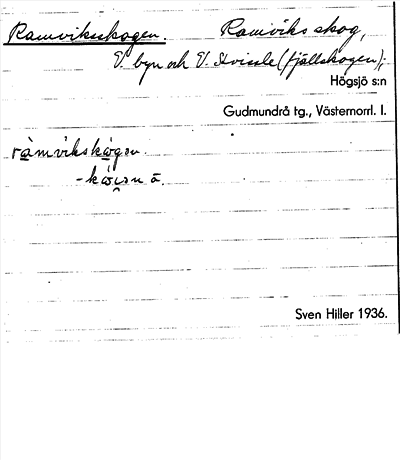 Ramviksskogen. Ramviks skog,
V. byn och V. Kvissle (fjällskogen);
Högsjö s:n
Gudmundrå tg., Västernorrl. l.
ràmvikskǫ̀gən.
Sven Hiller 1936.